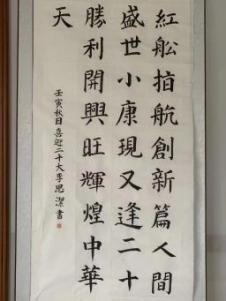 紅船指航創新篇人間
盛世小康現又逢二十
勝利開興旺輝煌中華
天
壬寅秋日喜迎二十大李思潔書